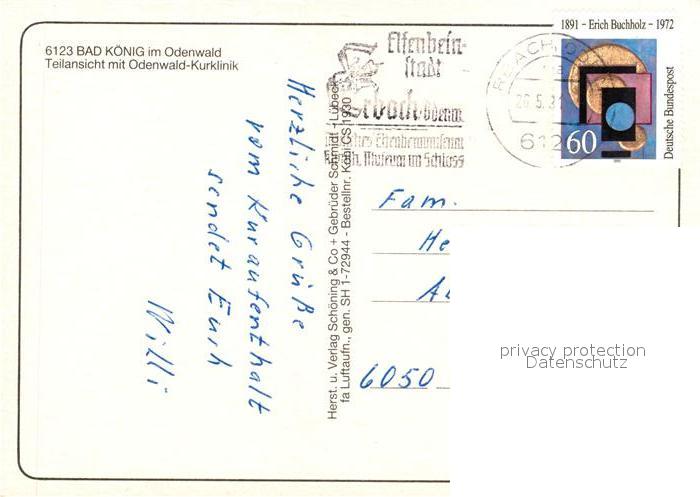 6123 BAD KÖNIG im Odenwald
Teilansicht mit Odenwald-Kurklinik
Herzliche Grüße
vom Kuraufenthalt
sendet Euch
Willi
Herst. u. Verlag Schöning & Co + Gebrüder Schmidt · Lübeck
fa Luftaufn., gen. SH 1-72944 - Bestellnr. Köni CS 1930
Elfenbein-
stadt
Erbach·odenw.
Museum im Schloss
1891 – Erich Buchholz – 1972
Deutsche Bundespost
60
612
Fam.
He
6050
privacy protection
Datenschutz